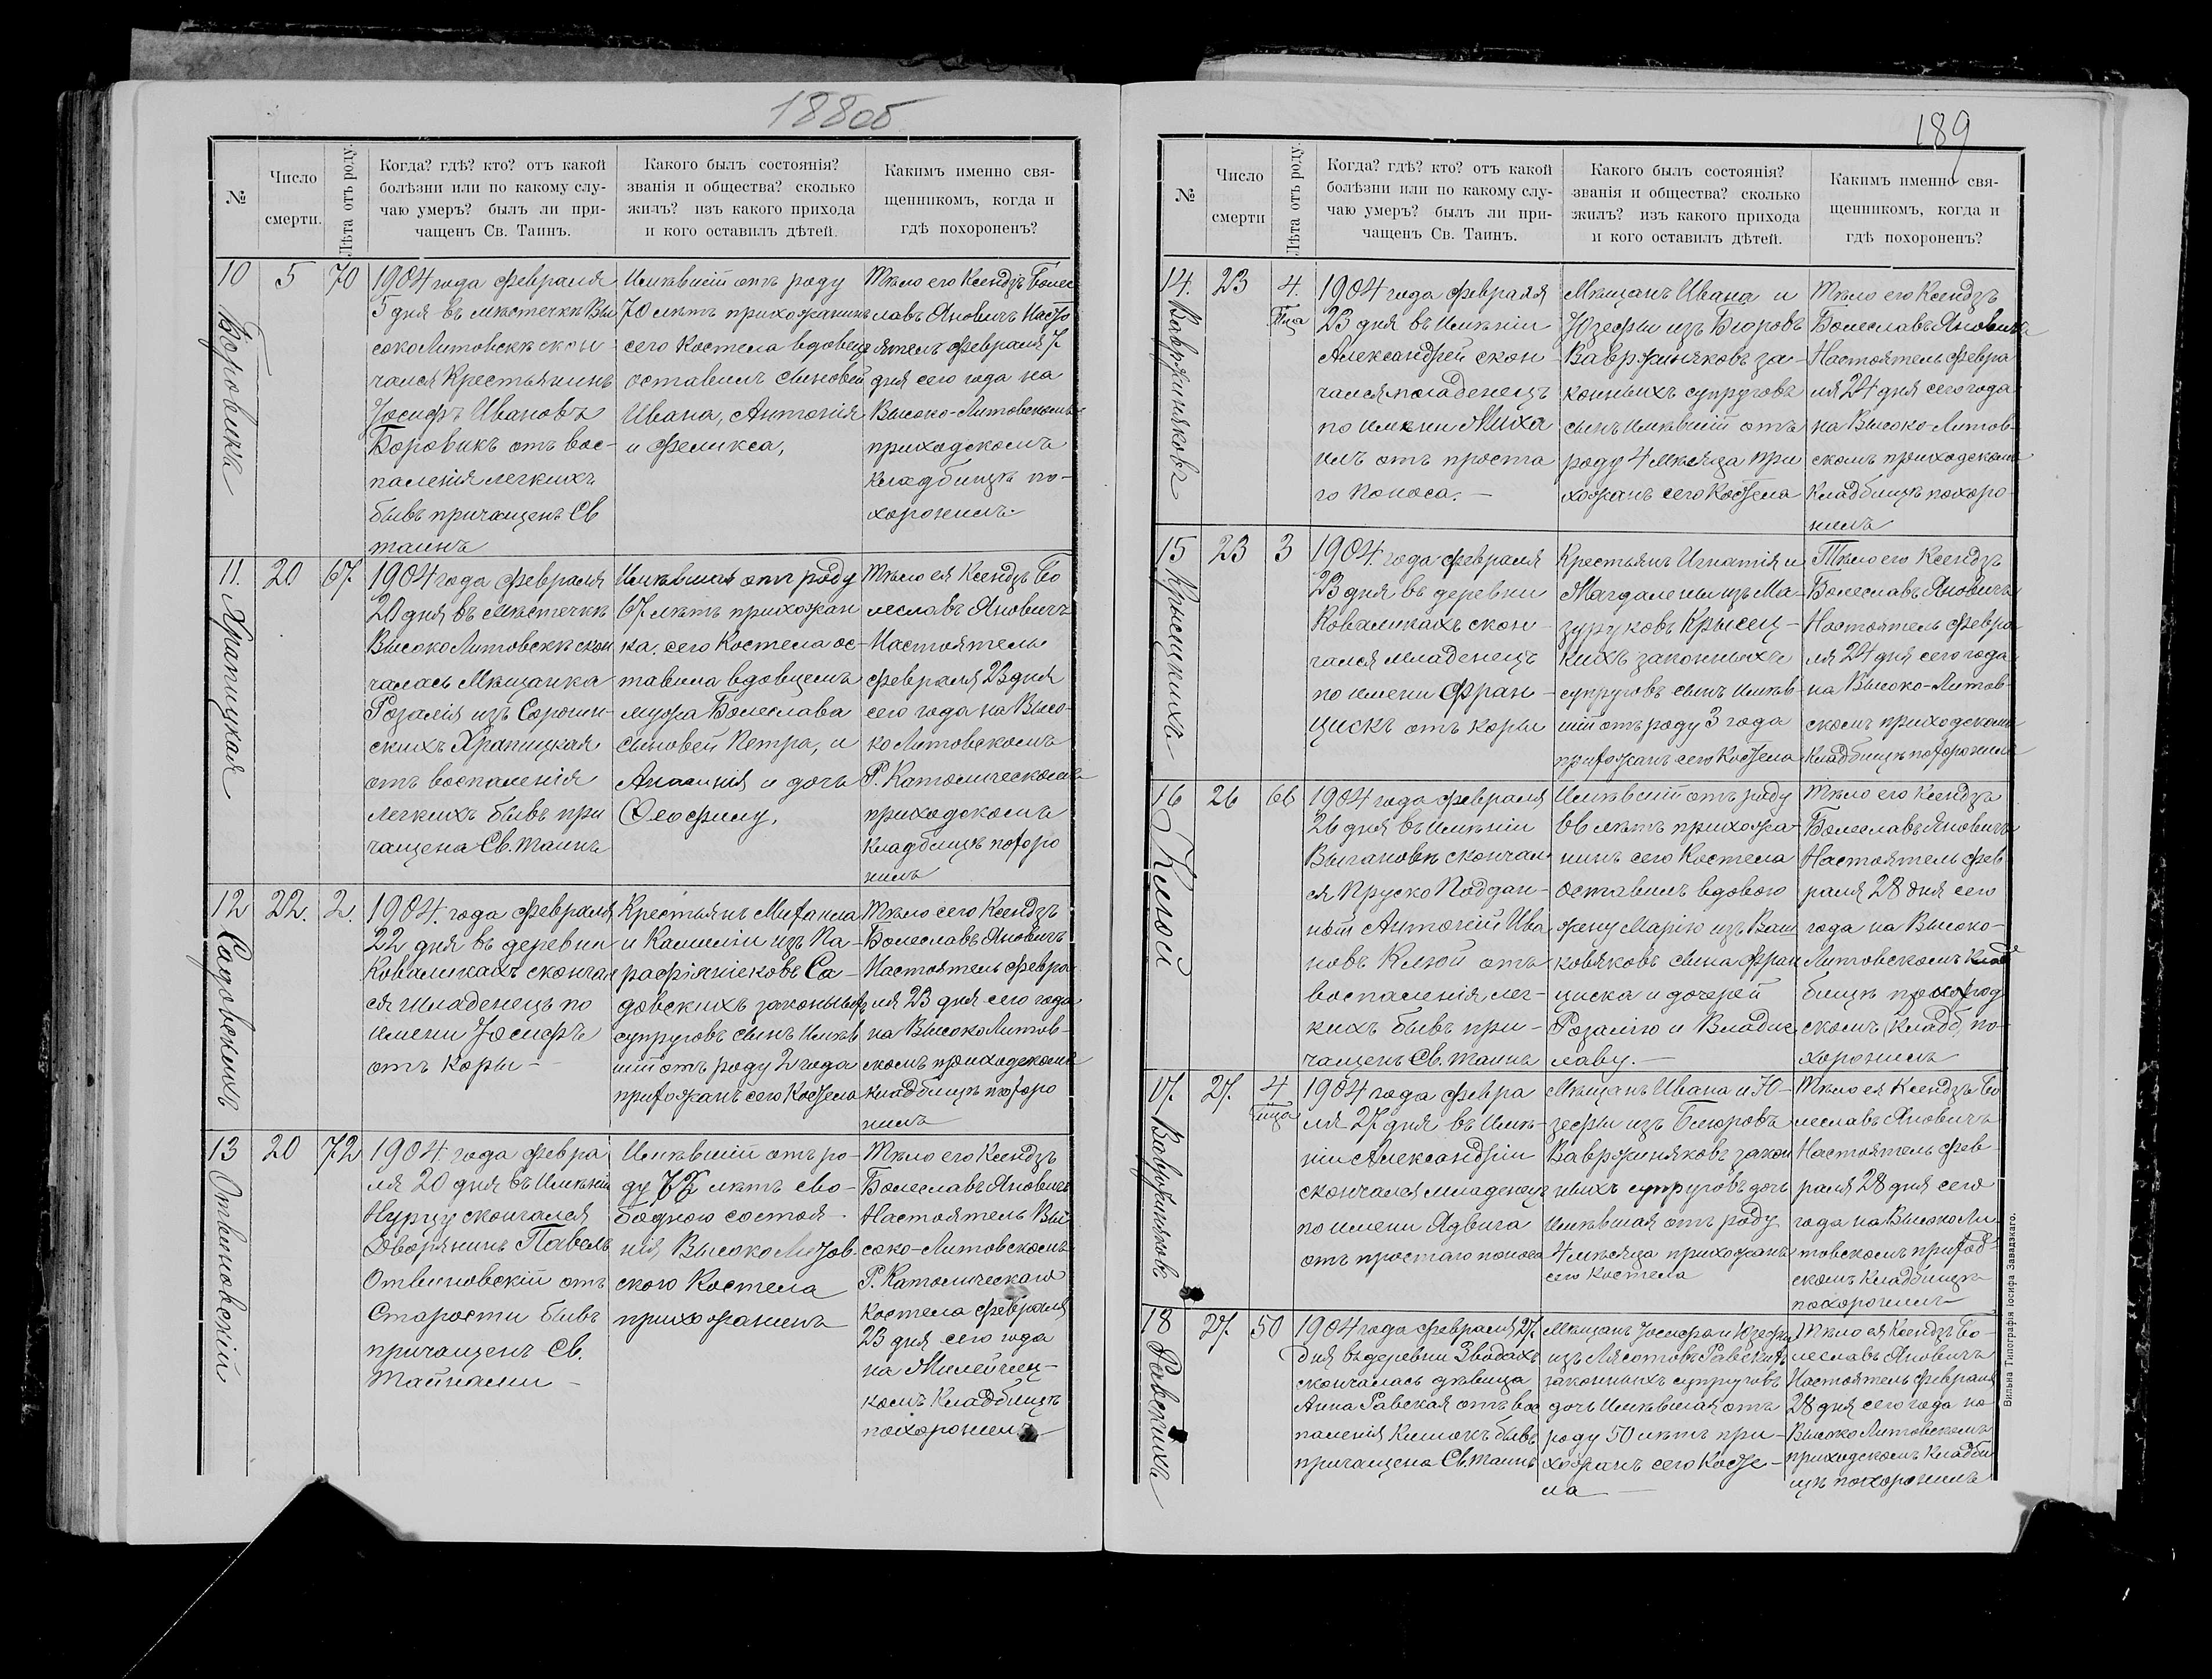 188об
№
Число
смерти.
Лѣта отъ роду.
Когда? гдѣ? кто? отъ какой
болѣзни или по какому слу-
чаю умеръ? былъ ли при-
чащенъ Св. Таинъ.
Какого былъ состоянія?
званія и общества? сколько
жилъ? изъ какого прихода
и кого оставилъ дѣтей.
Какимъ именно свя-
щенникомъ, когда и
гдѣ похороненъ?
10
Боровикъ
5
70
1904 года февраля
5 дня въ мѣстечкѣ Вы
соколитовскѣ скон
чался Крестьянинъ
Іосифъ Ивановъ
Боровикъ отъ вос-
паленія легкихъ
бывъ причащенъ Св
таинъ
Имѣвшій отъ роду
70 лѣтъ прихожанинъ
сего Костела вдовец
оставилъ сыновей
Ивана, Антонія
и Феликса,
Тѣло его Ксендзъ Болес
лавъ Яновичъ Насто
ятель февраля 7
дня сего года на
Высоко-Литовскомъ
приходскомъ
кладбищѣ по-
хоронилъ.
11.
Храпицкая
20
67.
1904 года февраля
20 дня въ мѣстечкѣ
Высоколитовскѣ скон
чалась Мѣщанка
Розалія изъ Сорочин-
скихъ Храпицкая
отъ воспаленія
легкихъ бывъ при
чащена Св. таинъ
Имѣвшая отъ роду
67 лѣтъ прихожан
ка сего Костела ос-
тавила вдовцемъ
мужа Болеслава
сыновей Петра, и
и дочь
Феофилу,
Тѣло ея Ксендзъ Бо
леславъ Яновичъ
Настоятель
февраля 23 дня
сего года на Высо-
ко Литовскомъ
Р. Католическомъ
приходскомъ
кладбищѣ похоро
нилъ
12
Садовскихъ
22.
2.
1904. года февраля
22 дня въ деревни
Коваликахъ скончал
ся младенецъ по
имени Іосифъ
отъ коры -
Крестьянъ Михаила
и Камиліи изъ Па-
Са-
довскихъ законныхъ
супруговъ сынъ имѣв
шій отъ роду 2 года
прихожанъ сего Костела
Тѣло сего Ксендзъ
Болеславъ Яновичъ
Настоятель февра
ля 23 дня сего года
на Высоко Литов-
скомъ приходскомъ
кладбищѣ похоро
нилъ
13
Отвиновскій
20
72
1904 года февра
ля 20 дня въ имѣніи
Нурцу скончался
Дворянинъ Павелъ
Отвиновскій отъ
Старости бывъ
причащенъ Св.
Тайнами -
Имѣвшій отъ ро-
ду 72 лѣтъ сво-
бодною состоя-
нія Высоко Литов.
скою Костела
прихожанинъ
Тѣло его Ксендзъ
Болеславъ Яновичъ
Настоятель Вы
соко-Литовскомъ
Р. Католическаго
Костела февраля
23 дня сего года
на Милейчиц-
комъ Кладбищѣ
похоронилъ
189
№
Число
смерти
Лѣта отъ роду.
Когда? гдѣ? кто? отъ какой
болѣзни или по какому слу-
чаю умеръ? былъ ли при-
чащенъ Св. Таинъ.
Какого былъ состоянія?
званія и общества? сколько
жилъ? изъ какого прихода
и кого оставилъ дѣтей.
Какимъ именно свя-
щенникомъ, когда и
гдѣ похороненъ?
14.
Вавржиняковъ
23
4.
1904 года февраля
23 дня въ имѣніи
Александріи скон-
чался младенецъ
по имени Миха
илъ отъ проста
го поноса. -
Мѣщанъ Ивана и
Юзефы изъ Бюровъ
Вавржиняковъ за-
конныхъ супруговъ
сынъ имѣвшій отъ
роду 4 мѣсяца при
хожанъ сего Костела
Тѣло его Ксендзъ
Болеславъ Яновичъ
Настоятель февра
ля 24 дня сего года
на Высоко-Литов-
скомъ приходскомъ
кладбищѣ похоро-
нилъ
15
Крысицкихъ
23
3
1904. года февраля
23 дня въ деревни
Ковалѝкахъ скон-
чался младенецъ
по имени Фран-
цискъ отъ коры
Крестьянъ Игнатія и
Магдалены изъ Ма-
зуруковъ Крысиц-
кихъ законныхъ
супруговъ сынъ имѣв
шій отъ роду 3 года
прихожанъ сего Костела
Тѣло его Ксендзъ
Болеславъ Яновичъ
Настоятель февра
ля 24 дня сего года
на Высоко-Литов-
скомъ приходскомъ
кладбищѣ похоронилъ
16
Клюй
26
66
1904 года февраля
26 дня въ имѣніи
Выгановѣ скончал
ся Пруско Поддан-
ный Антоній Ива
новъ Клюй отъ
воспаленія лег-
кихъ бывъ при-
чащенъ Св. таинъ
Имѣвшій отъ роду
66 лѣтъ прихожа-
нинъ сего Костела
оставилъ вдовою
жену Марію изъ Ваш
ковяковъ сына Фран
циска и дочерей
Розалію и Владис
лаву. -
Тѣло его Ксендзъ
Болеславъ Яновичъ
Настоятель фев
раля 28 дня сего
года на Высоко-
Литовскомъ клад
бищѣ приход
скомъ (кладб) по-
хоронилъ
17.
Вавржиняковъ
27.
4
1904 года февра
ля 27 дня въ имѣ-
ніи Александріи
скончался младенецъ
по имени Ядвига
отъ простаго поноса
Мѣщанъ Ивана и Ю-
зефы изъ Бюровъ
Вавржиняковъ закон
ныхъ супруговъ дочь
имѣвшая отъ роду
4 мѣсяца прихожанъ
сего Костела
Тѣло ея Ксендзъ Бо
леславъ Яновичъ
Настоятель фев-
раля 28 дня сего
года на Высоко Ли-
товскомъ приход-
скомъ Кладбищѣ
похоронилъ
18
Равскихъ
27.
50
1904 года февраля 27.
дня въ деревни Зводахъ
скончалась дѣвица
Анна Равская отъ вос
паленія кишокъ бывъ
причащена Св. таинъ
Мѣщанъ Іосифа и Юзефы
изъ Лясотовъ Равскихъ
законныхъ супруговъ
дочь имѣвшая отъ
роду 50 лѣтъ при-
хожанъ сего Косте-
ла -
Тѣло ея Ксендзъ Бо-
леславъ Яновичъ
Настоятель февраля
28 дня сего года на
Высоко Литовскомъ
приходскомъ Кладби
щѣ похоронилъ
Вильна Типографія Іосифа Завадзкаго.